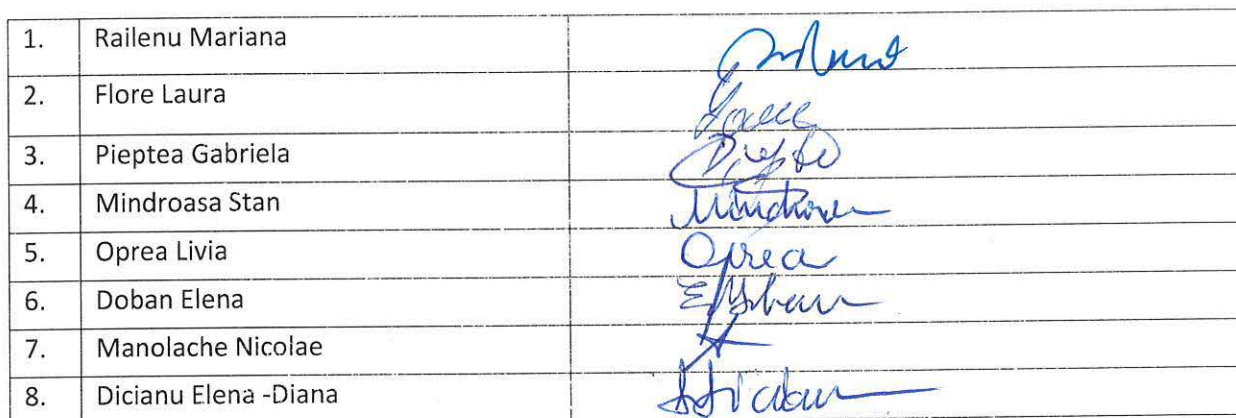 1. Railenu Mariana
2. Flore Laura
3. Pieptea Gabriela
4. Mindroasa Stan
5. Oprea Livia Oprea
6. Doban Elena
7. Manolache Nicolae
8. Dicianu Elena -Diana